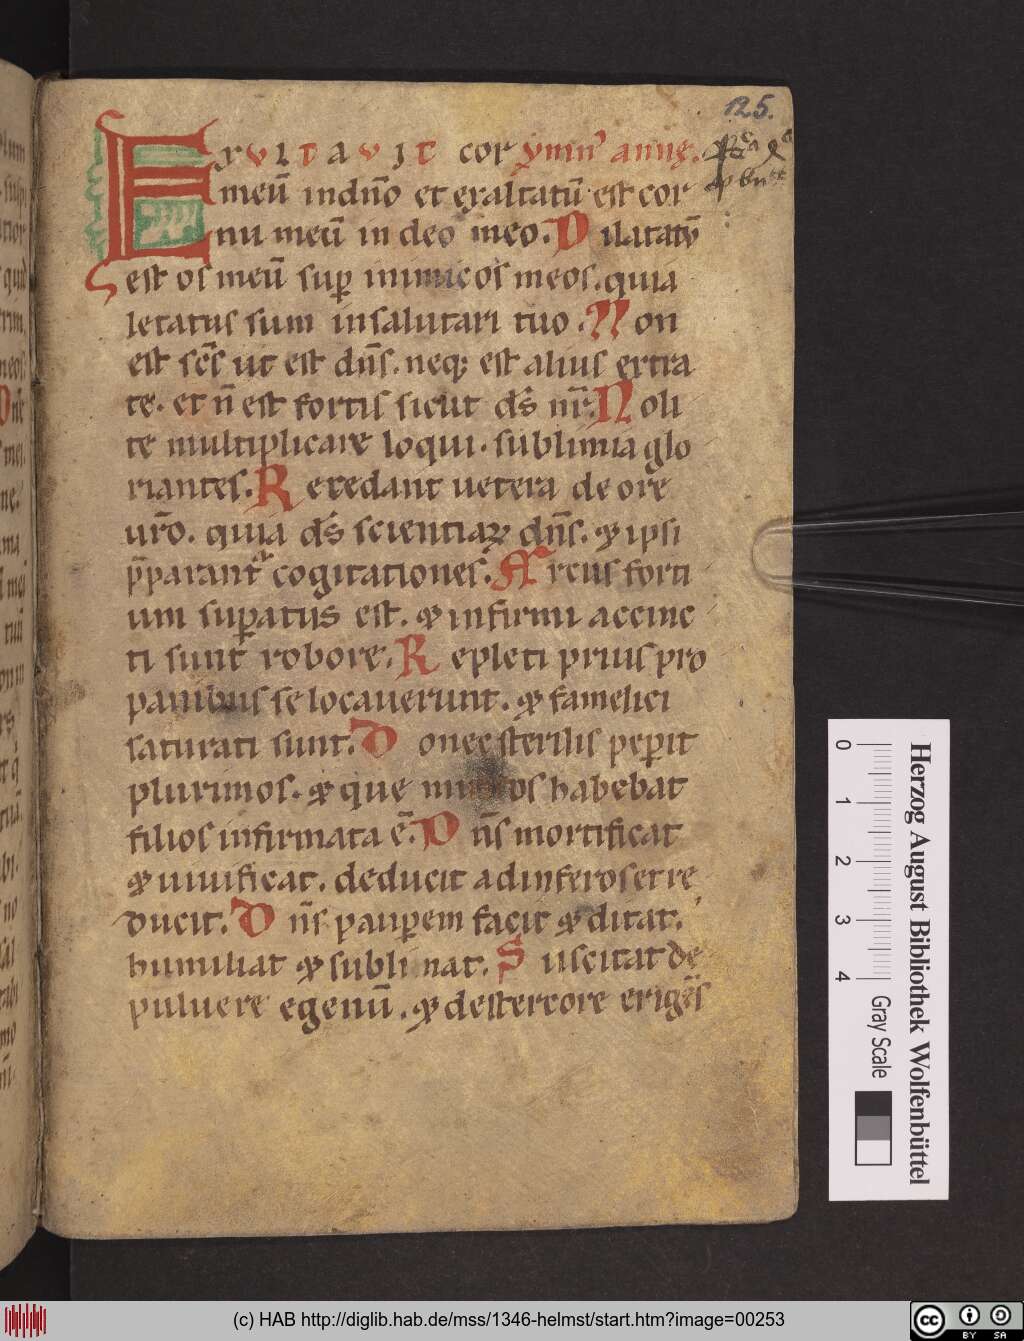 125.
EXVLTAVIT cor ymn᷒ annę.
meū in dn̄o et exaltatū est cor
nu meū in deo meo. Dilatatū
est os meū sup̱ inimicos meos. quia
letatus sum in salutari tuo. Non
est sc̄s ut est dn̄s. neq; est alius extra
te. et n̄ est fortis sicut ds̄ nr̄. Noli
te multiplicare loqui. sublimia glo
riantes. Recedant uetera de ore
ur̄o. quia ds̄ scientiaꝝ dn̄s. & ipsi
p̄parant᷒ cogitationes. Arcus forti
um sup̱atus est. & infirmi accinc
ti sunt robore. Repleti prius pro
panibus se locauerunt. & famelici
saturati sunt. Donec sterilis pep̱it
plurimos. & que multos habebat
filios infirmata ē. Dn̄s mortificat
& uiuificat. deducit ad inferos et re
ducit. Dn̄s paup̱em facit & ditat.
humiliat & subliuiat. Suscitat de
puluere egenū. & de stercore erigēs
Herzog August Bibliothek Wolfenbüttel
0 1 2 3 4
Gray Scale
(c) HAB http://diglib.hab.de/mss/1346-helmst/start.htm?image=00253
cc BY SA